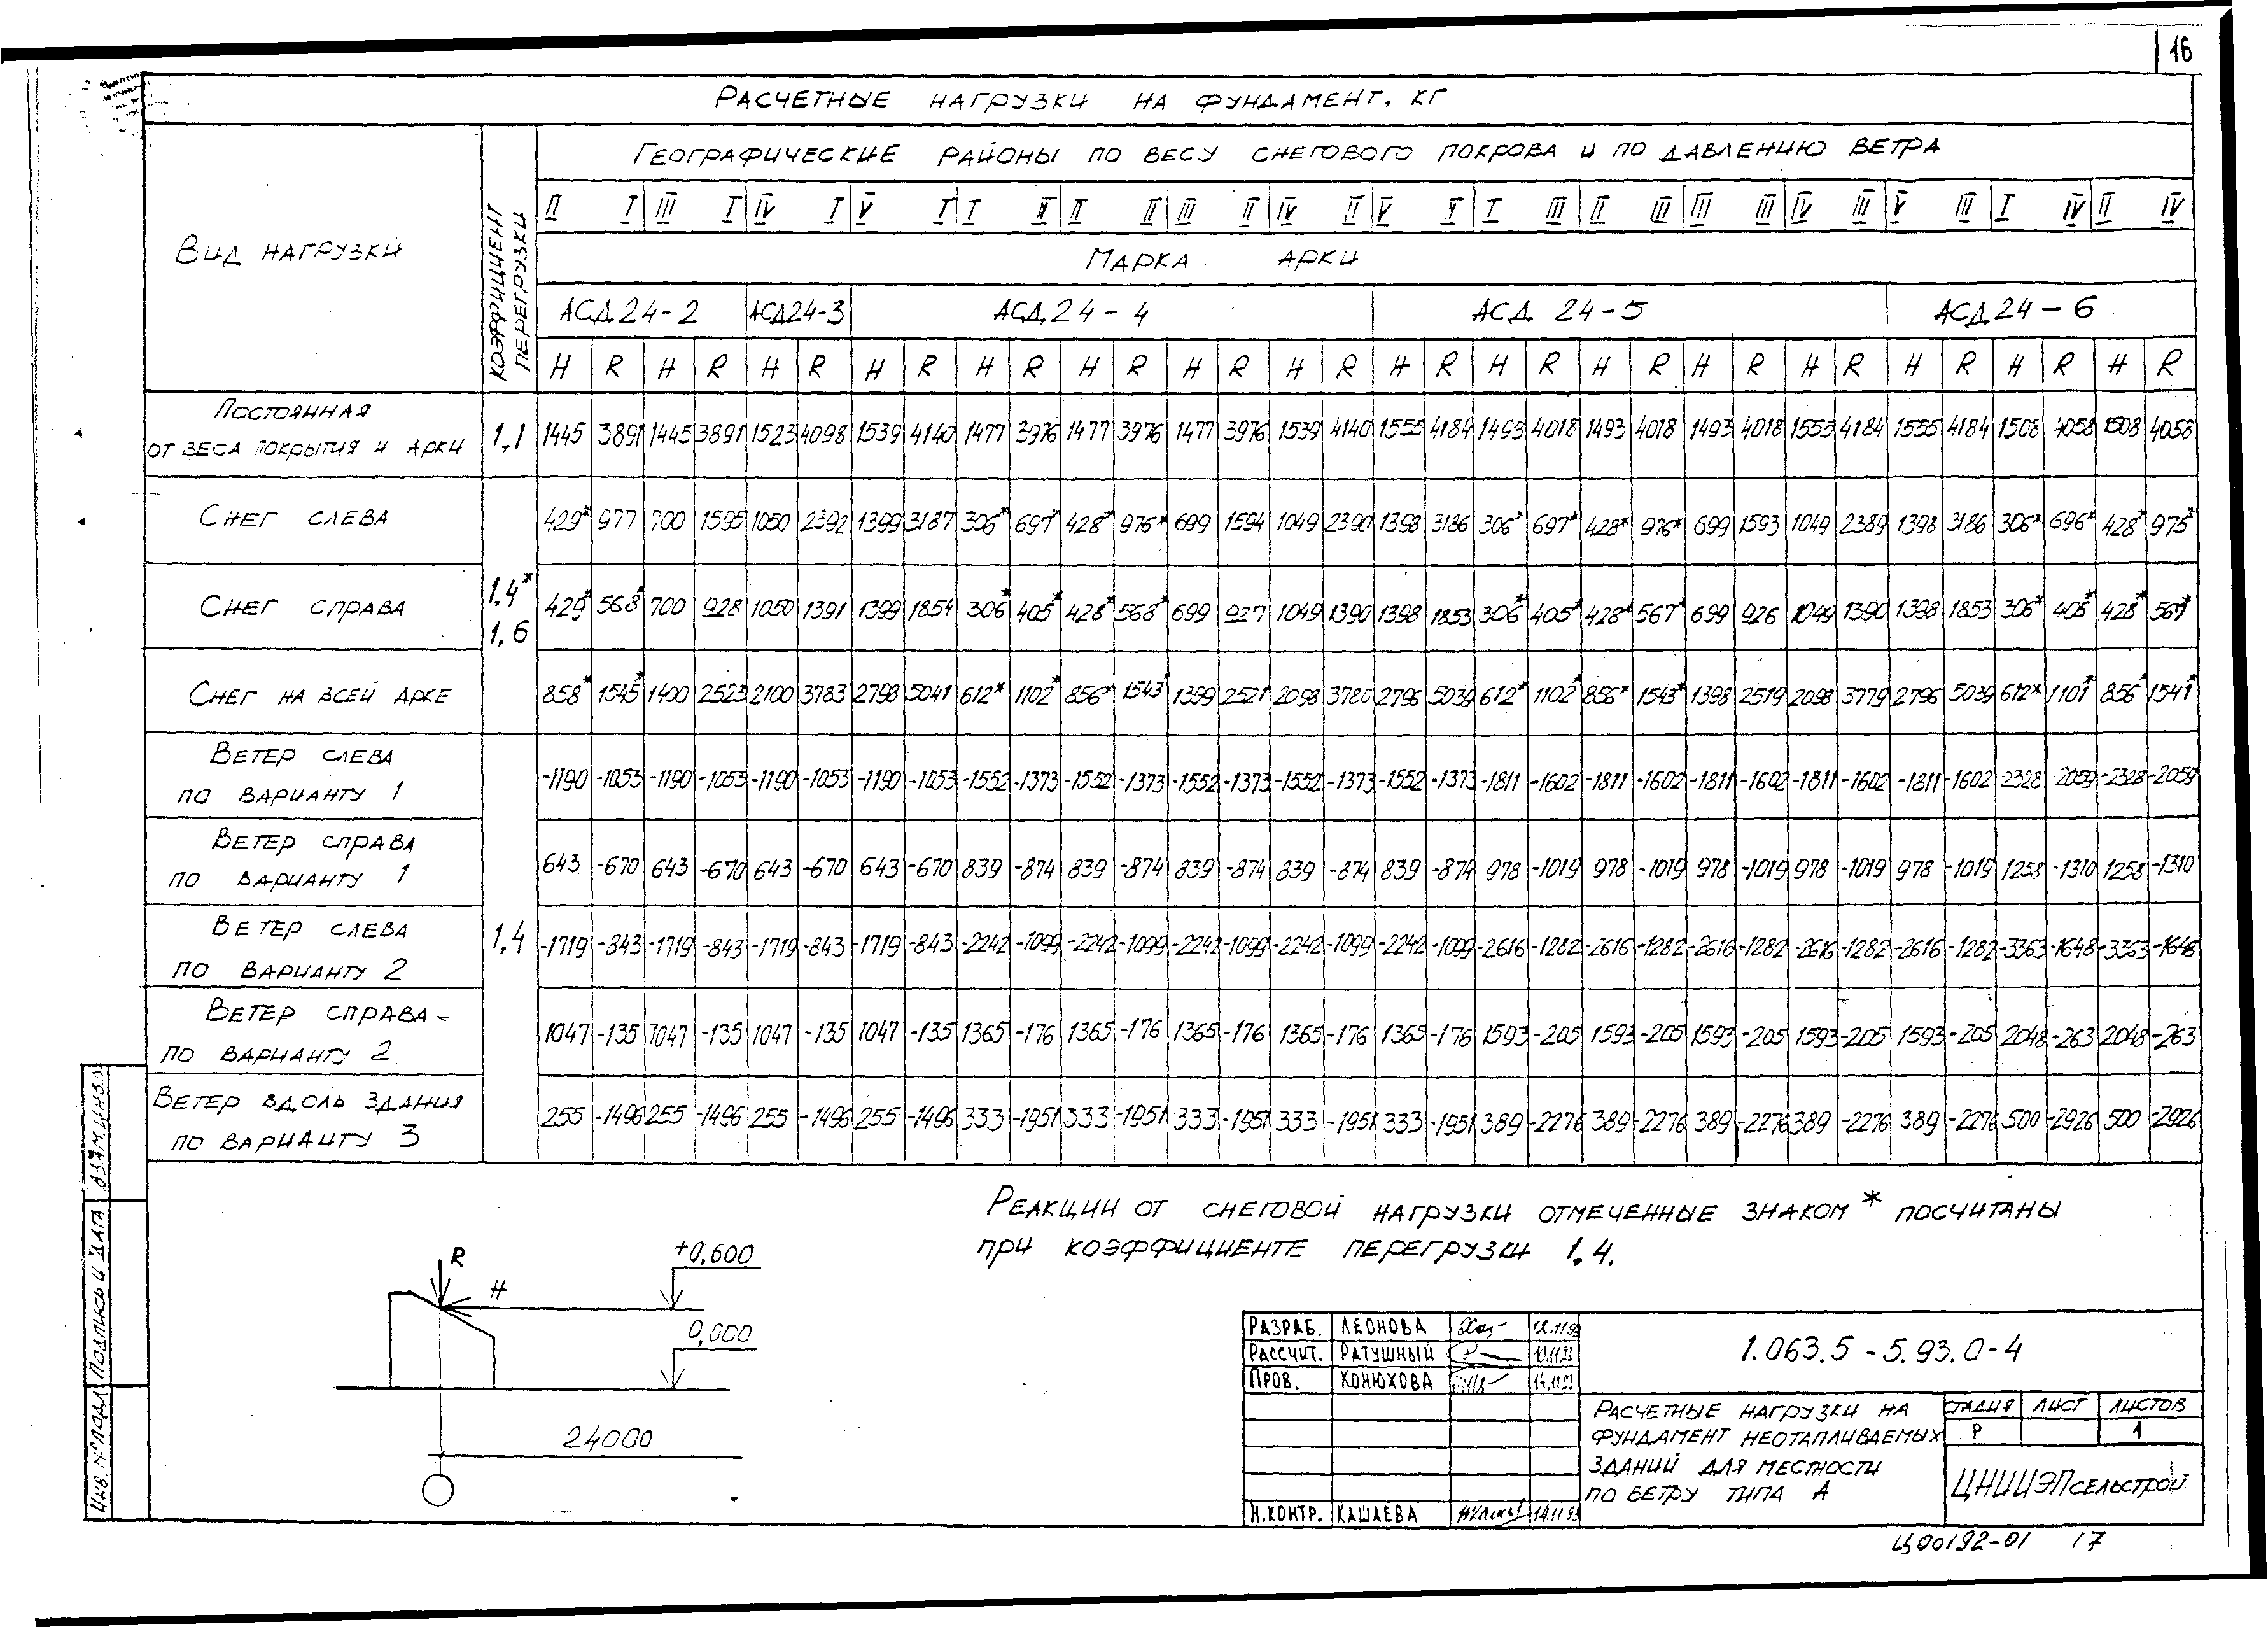 16
РАСЧЕТНЫЕ НАГРУЗКИ НА ФУНДАМЕНТ, КГ
ВИД НАГРУЗКИ
КОЭФФИЦИЕНТ ПЕРЕГРУЗКИ
ГЕОГРАФИЧЕСКИЕ РАЙОНЫ ПО ВЕСУ СНЕГОВОГО ПОКРОВА И ПО ДАВЛЕНИЮ ВЕТРА
II I III I IV I V I I II II II III II IV II V II I III II III III III IV III V III I IV II IV
МАРКА АРКИ
АСД24-2 АСД24-3 АСД24-4 АСД 24-5 АСД24-6
H R H R H R H R H R H R H R H R H R H R H R H R H R H R H R H R
ПОСТОЯННАЯ
ОТ ВЕСА ПОКРЫТИЯ И АРКИ 1,1 1445 3891 1445 3891 1523 4098 1539 4140 1477 3976 1477 3976 1477 3976 1539 4140 1555 4184 1493 4018 1493 4018 1493 4018 1555 4184 1555 4184 1508 4058 1508 4058
СНЕГ СЛЕВА 429* 977 700 1595 1050 2392 1399 3187 306* 697* 428* 976* 699 1594 1049 2390 1398 3186 306* 697* 428* 976* 699 1593 1049 2389 1398 3186 306* 696* 428* 975*
СНЕГ СПРАВА 1.4* 1,6 429* 568* 700 928 1050 1391 1399 1854 306* 405* 428* 568* 699 927 1049 1390 1398 1853 306* 405* 428* 567* 699 926 1049 1390 1398 1853 306* 405* 428* 567*
СНЕГ НА ВСЕЙ АРКЕ 858* 1545* 1400 2523 2100 3783 2798 5041 612* 1102* 856* 1543* 1399 2521 2098 3780 2796 5039 612* 1102* 856* 1543* 1398 2519 2098 3779 2796 5039 612* 1101* 856* 1541*
ВЕТЕР СЛЕВА
ПО ВАРИАНТУ 1 -1190 -1053 -1190 -1053 -1190 -1053 -1190 -1053 -1552 -1373 -1552 -1373 -1552 -1373 -1552 -1373 -1552 -1373 -1811 -1602 -1811 -1602 -1811 -1602 -1811 -1602 -1811 -1602 -2328 -2059 -2328 -2059
ВЕТЕР СПРАВА
ПО ВАРИАНТУ 1 643 -670 643 -670 643 -670 643 -670 839 -874 839 -874 839 -874 839 -874 839 -874 978 -1019 978 -1019 978 -1019 978 -1019 978 -1019 1258 -1310 1258 -1310
ВЕТЕР СЛЕВА
ПО ВАРИАНТУ 2 1,4 -1719 -843 -1719 -843 -1719 -843 -1719 -843 -2242 -1099 -2242 -1099 -2242 -1099 -2242 -1099 -2242 -1099 -2616 -1282 -2616 -1282 -2616 -1282 -2616 -1282 -2616 -1282 -3363 -1648 -3363 -1648
ВЕТЕР СПРАВА -
ПО ВАРИАНТУ 2 1047 -135 1047 -135 1047 -135 1047 -135 1365 -176 1365 -176 1365 -176 1365 -176 1365 -176 1593 -205 1593 -205 1593 -205 1593 -205 1593 -205 2048 -263 2048 -263
ВЕТЕР ВДОЛЬ ЗДАНИЯ
ПО ВАРИАНТУ 3 255 -1496 255 -1496 255 -1496 255 -1496 333 -1951 333 -1951 333 -1951 333 -1951 333 -1951 389 -2276 389 -2276 389 -2276 389 -2276 389 -2276 500 -2926 500 -2926
РЕАКЦИИ ОТ СНЕГОВОЙ НАГРУЗКИ ОТМЕЧЕННЫЕ ЗНАКОМ * ПОСЧИТАНЫ
ПРИ КОЭФФИЦИЕНТЕ ПЕРЕГРУЗКИ 1,4.
R
H
+0,600
0,000
24000
ИНВ.№ПОДЛ ПОДПИСЬ И ДАТА ВЗАМ.ИНВ.№
РАЗРАБ. ЛЕОНОВА 12.11.93
РАССЧИТ. РАТУШНЫЙ 12.11.93
ПРОВ. КОНЮХОВА 14.11.93
Н.КОНТР. КАШАЕВА 14.11.93
1.063.5-5.93.0-4
РАСЧЕТНЫЕ НАГРУЗКИ НА
ФУНДАМЕНТ НЕОТАПЛИВАЕМЫХ
ЗДАНИЙ ДЛЯ МЕСТНОСТИ
ПО ВЕТРУ ТИПА А
СТАДИЯ ЛИСТ ЛИСТОВ
Р 1
ЦНИИЭПсельстрой
Ц00192-01 17